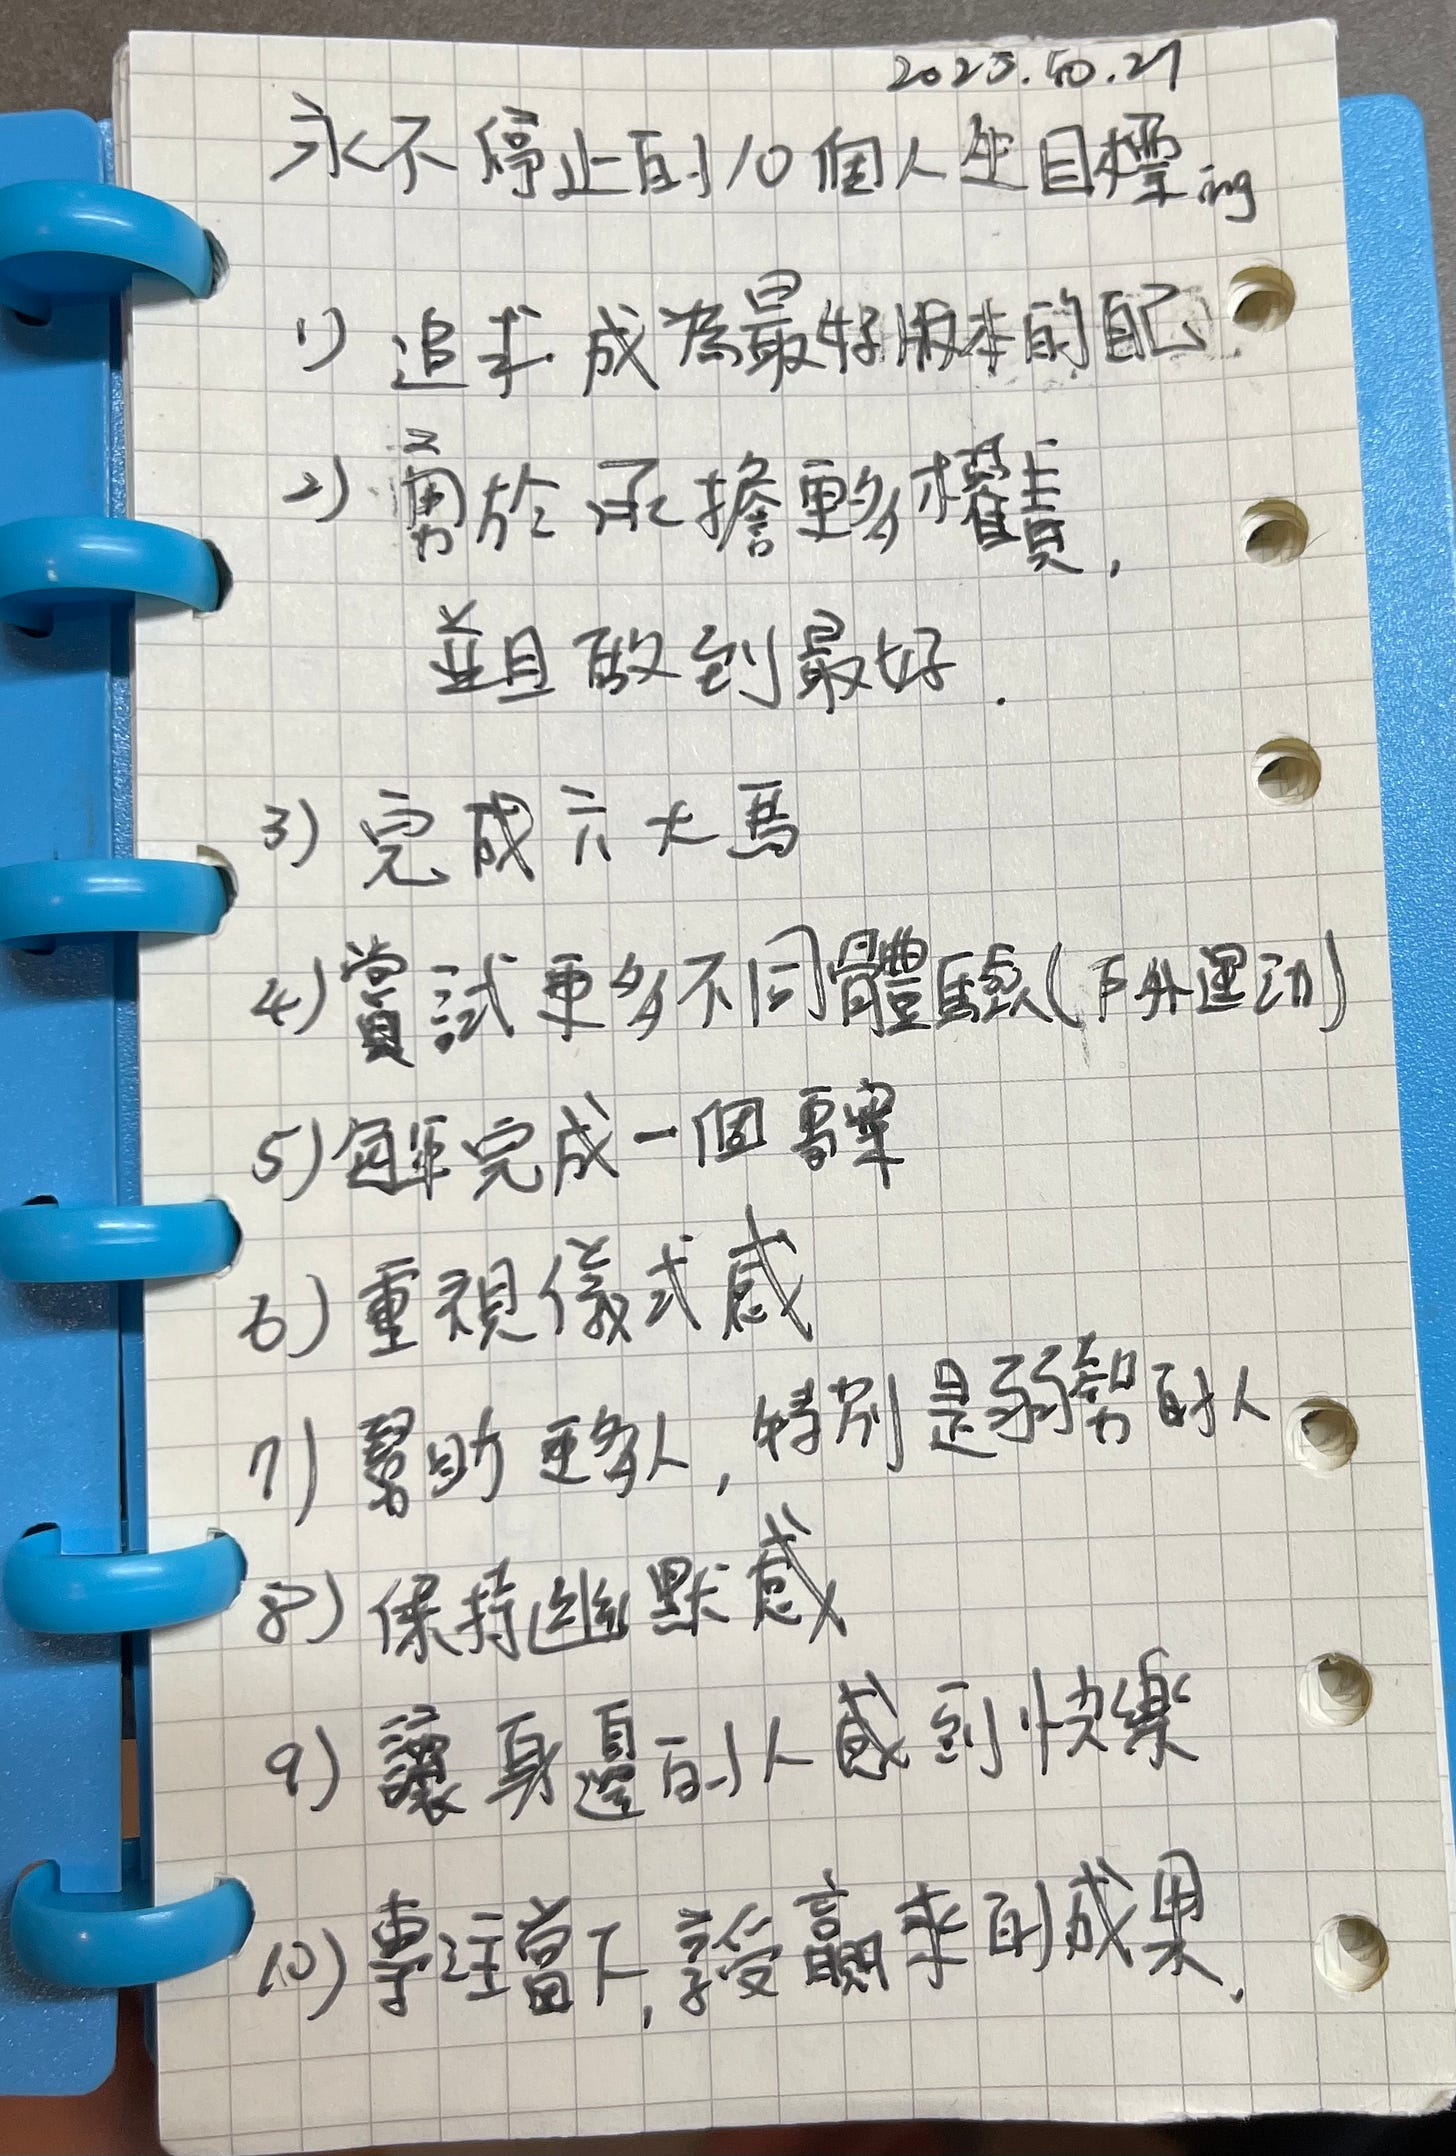 2025.10.27
永不停止的10個人生目標ing
1) 追求成為最好版本的自己
2) 勇於承擔更多權責,
並且做到最好.
3) 完成六大馬
4) 嘗試更多不同體驗(戶外運动)
5) 每年完成一個專案
6) 重視儀式感
7) 幫助更多人,特別是弱勢的人
8) 保持幽默感
9) 讓身邊的人感到快樂
10) 專注當下,享受贏來的成果.